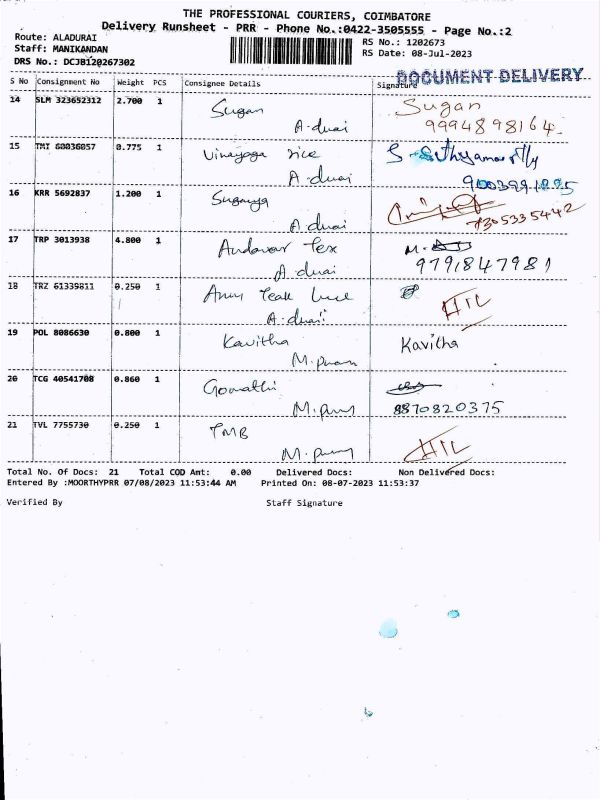 THE PROFESSIONAL COURIERS, COIMBATORE
Delivery Runsheet - PRR - Phone No.:0422-3505555 - Page No.:2
Route: ALADURAI
RS No.: 1202673
Staff: MANIKANDAN
RS Date: 08-Jul-2023
DRS No.: DCJB120267302
DOCUMENT DELIVERY
S No Consignment No Weight PCS Consignee Details Signature
14 SLM 323652312 2.700 1 Sugan Sugan
A.duai 9994898164
15 TMI 60036057 0.775 1 Vinayaga rice
A.duai
16 KRR 5692837 1.200 1 Suganya
A.duai 7305335442
17 TRP 3013938 4.800 1 Andavar Tex M.
A.duai 9791847981
18 TRZ 61339811 0.250 1
A.duai
19 POL 8086630 0.800 1 Kavitha Kavitha
20 TCG 40541708 0.860 1 Gomathi
8870820375
21 TVL 7755730 0.250 1 TMB
Total No. Of Docs: 21 Total COD Amt: 0.00 Delivered Docs: Non Delivered Docs:
Entered By :MOORTHYPRR 07/08/2023 11:53:44 AM Printed On: 08-07-2023 11:53:37
Verified By Staff Signature